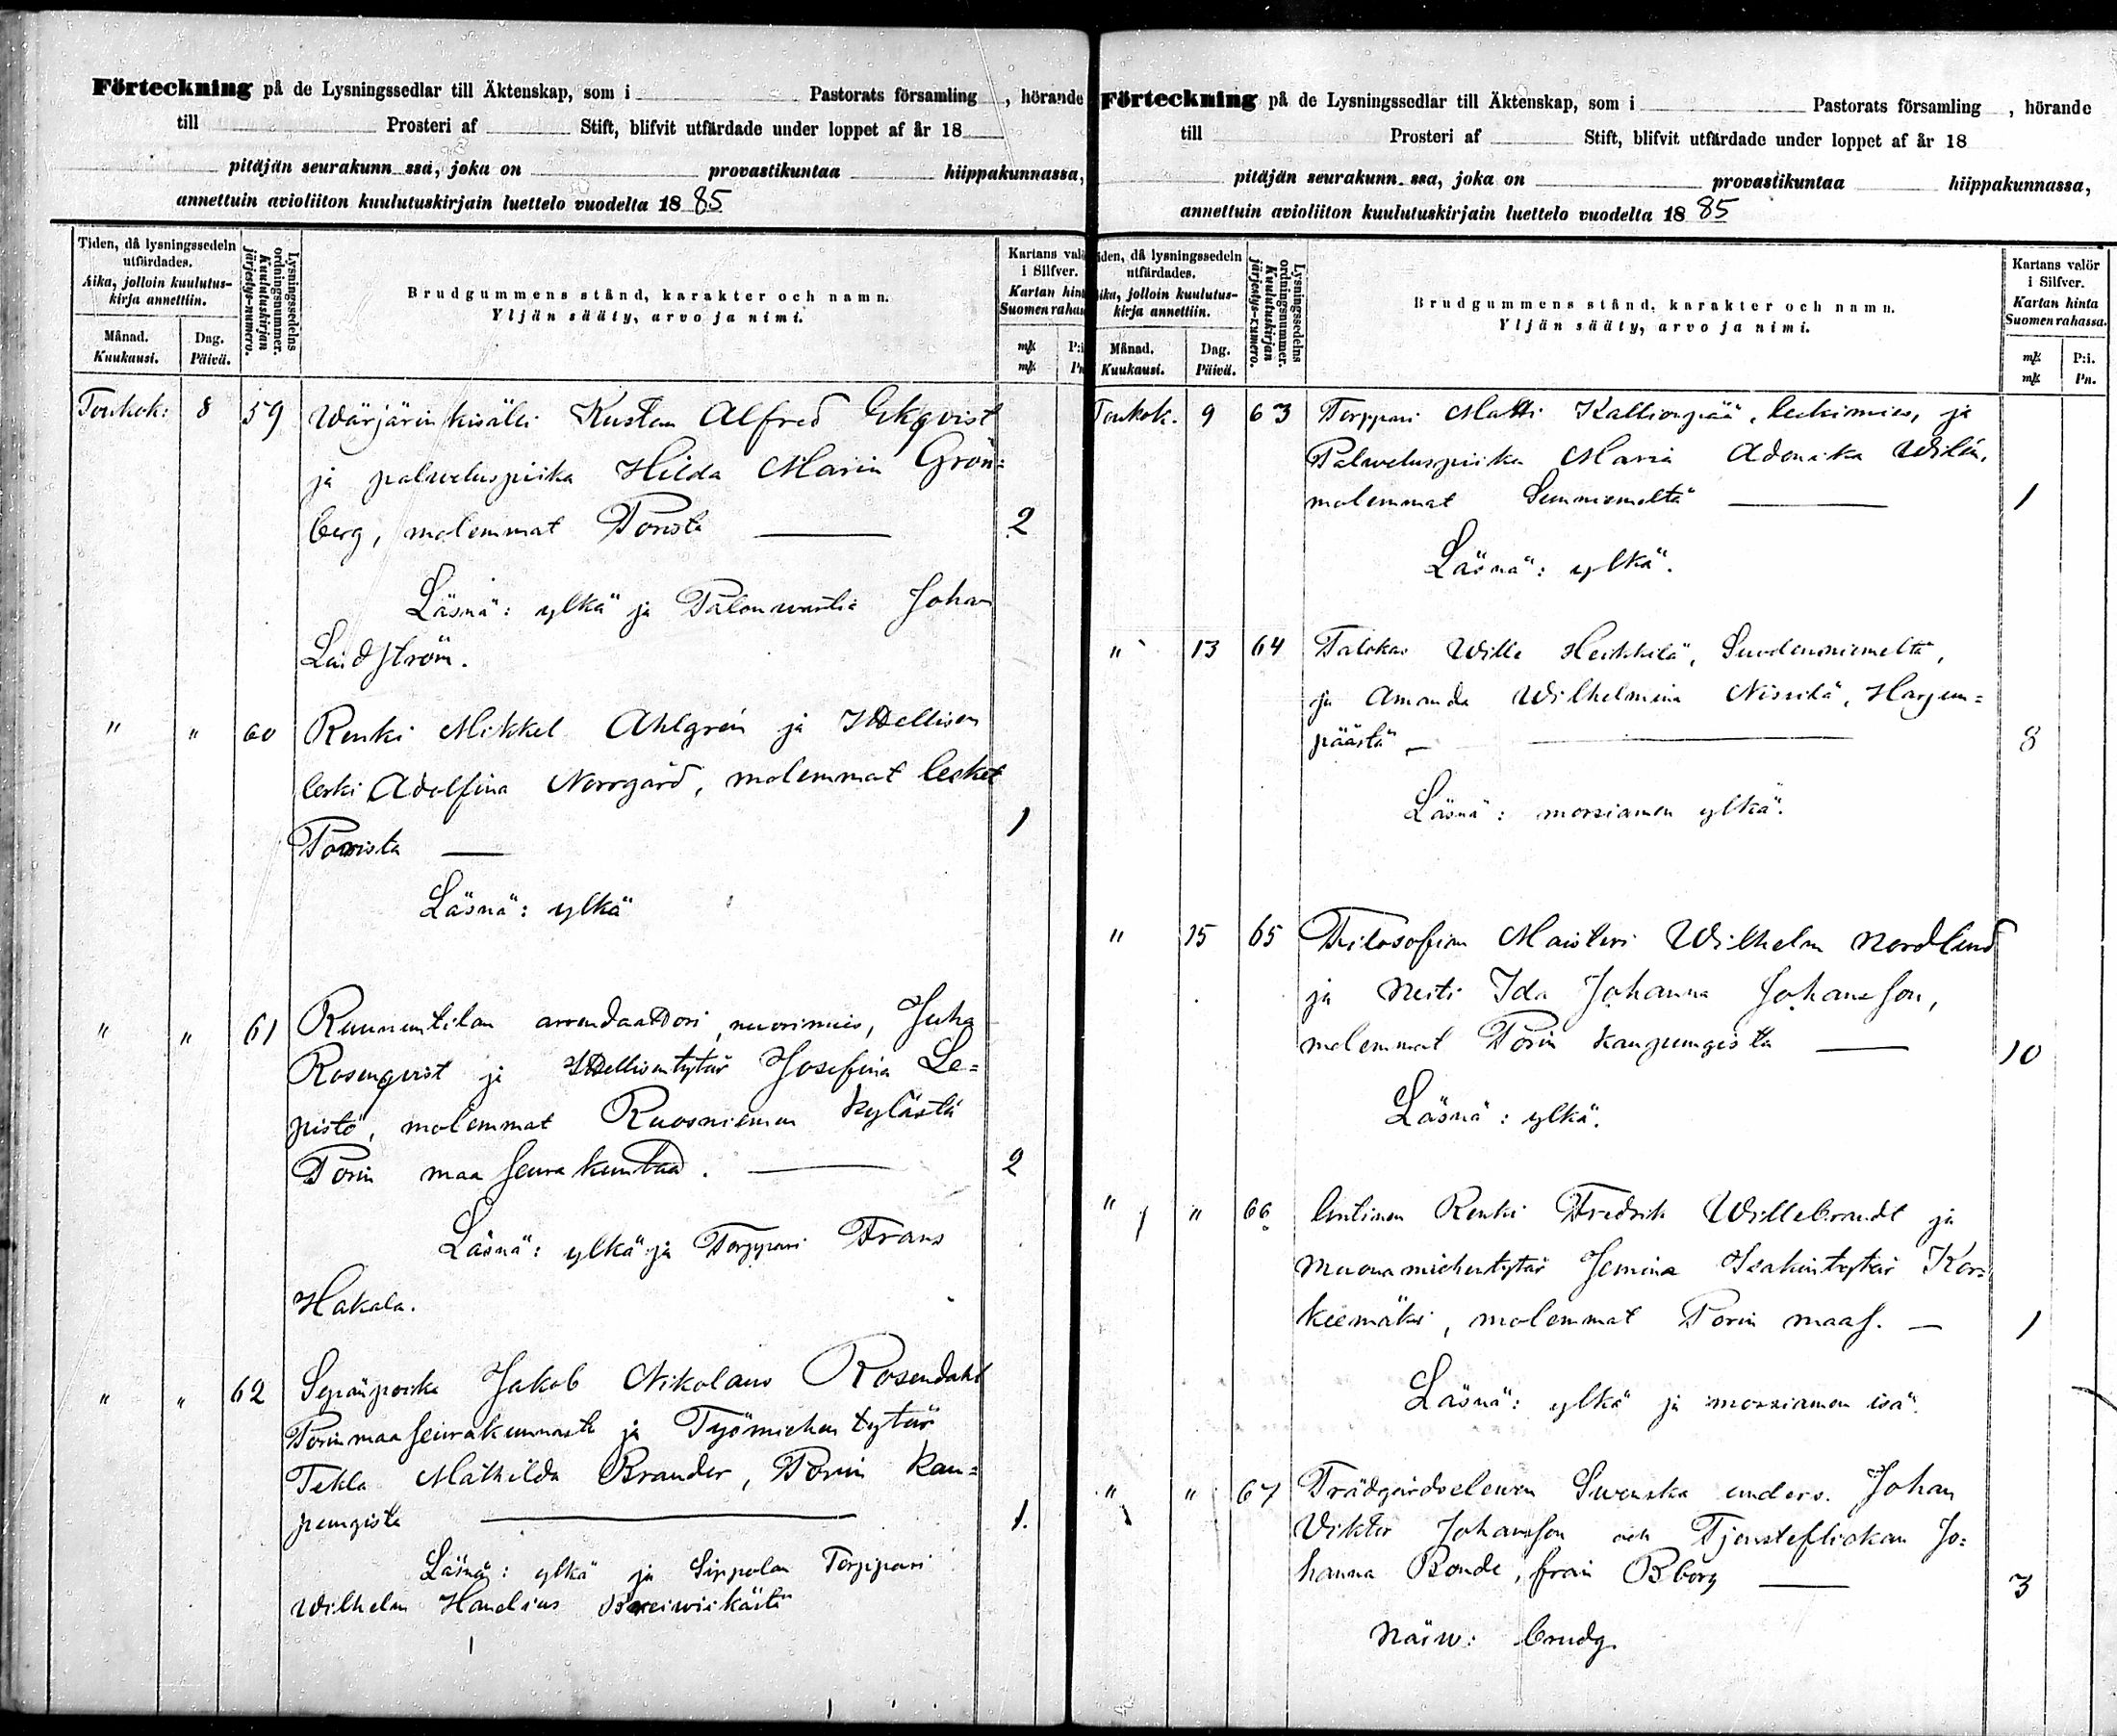 Förteckning på de Lysningssedlar till Äktenskap, som i Pastorats församling , hörande
till Prosteri af Stift, blifvit utfärdade under loppet af år 18
pitäjän seurakunn ssa, joka on provastikuntaa hiippakunnassa,
annettuin avioliiton kuulutuskirjain luettelo vuodelta 18 85
Tiden, då lysningssedeln
utfärdades.
Aika, jolloin kuulutus-
kirja annettiin.
Månad.
Kuukausi.
Dag.
Päivä.
Lysningssedelns
ordningsnummer.
Kuulutuskirjan
järjestys-numero.
Brudgummens stånd, karakter och namn.
Yljän sääty, arvo ja nimi.
Kartans valö
i Silfver.
Kartan hint
Suomen rahas
mk P:i
mk Pn
Toukok: 8 59 Wärjärin kisälli Kustaa Alfred Ekqvist
ja palveluspiika Hilda Maria Grön=
berg, molemmat Porista — 2
Läsnä: ylkä ja Palonwartia Johan
Lindström.
" " 60 Renki Mikkel Ahlgrén ja Itsellisen
leski Adolfina Norrgård, molemmat lesket
Porista — 1
Läsnä: ylkä
" " 61 Ruununtilan arrendaattori, nuorimies, Juha
Rosenqvist ja Itsellisentytär Josefina Le=
pistö, molemmat Ruosniemen kylästä
Porin maaseurakuntaa. — 2
Läsnä: ylkä ja Torppari Frans
Hakala.
" " 62 Sepänpoika Jakob Nikolaus Rosendahl
Porinmaaseurakunnasta ja Työmiehen tytär
Tekla Mathilda Brander, Porin kau=
pungista — 1.
Läsnä: ylkä ja Sippolan Torppari
Wilhelm Hanelius
Förteckning på de Lysningssedlar till Äktenskap, som i Pastorats församling , hörande
till Prosteri af Stift, blifvit utfärdade under loppet af år 18
pitäjän seurakunn ssa, joka on provastikuntaa hiippakunnassa,
annettuin avioliiton kuulutuskirjain luettelo vuodelta 18 85
iden, då lysningssedeln
utfärdades.
ika, jolloin kuulutus-
kirja annettiin.
Månad.
Kuukausi.
Dag.
Päivä.
Lysningssedelns
ordningsnummer.
Kuulutuskirjan
järjestys-numero.
Brudgummens stånd, karakter och namn.
Yljän sääty, arvo ja nimi.
Kartans valör
i Silfver.
Kartan hinta
Suomen rahassa.
mk P:i.
mk Pn.
Toukok. 9 63 Torppari Matti Kallionpää, leskimies, ja
Palveluspiika Maria Adonika Wilén,
molemmat — 1
Läsnä: ylkä.
" 13 64 Talokas Wille Heikkilä, Suodenniemeltä,
ja Amanda Wilhelmina Nissilä, Harjun=
päästä — 8
Läsnä: morsiamen ylkä.
" 15 65 Filosofian Maisteri Wilhelm Nordlund
ja Neiti Ida Johanna Johansson,
molemmat Porin kaupungista — 10
Läsnä: ylkä.
" " 66 Entinen Renki Fredrik Willebrandt ja
Muonamiehentytär Jemina Isakintytär Kor=
keemäki, molemmat Porin maas. — 1
Läsnä: ylkä ja morsiamen isä.
" " 67 Trädgårdseleven Svenska unders. Johan
Viktor Johansson och Tjensteflickan Jo=
hanna Bonde, från Bborg — 3
Närv: brudg.